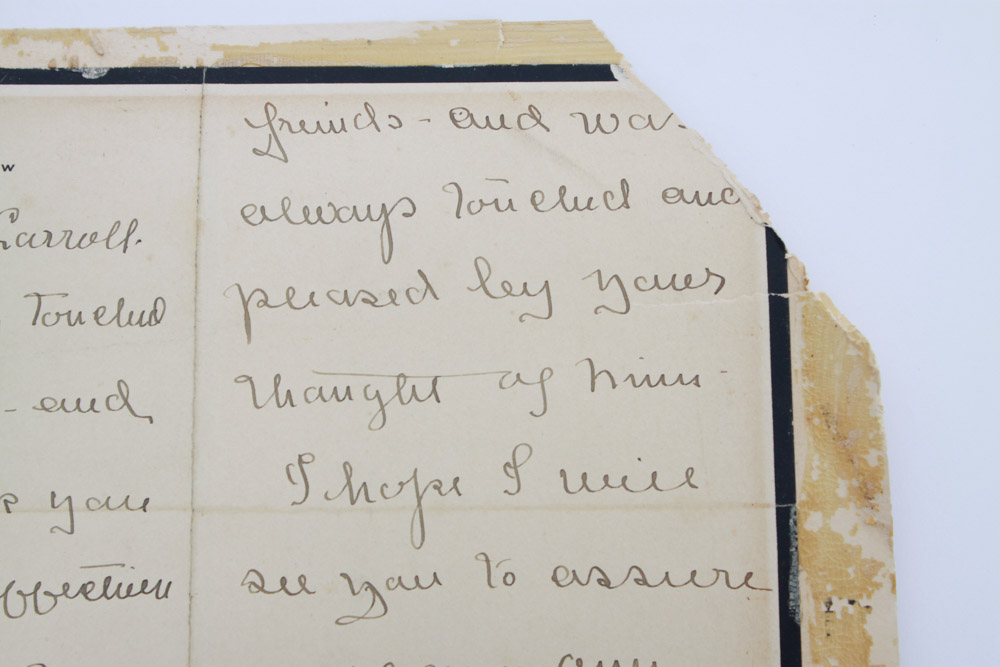 W
Carroll.
Touched
- and
you
affection
friends - and was
always touched and
pleased by your
thought of him -
I hope I will
see you to assure